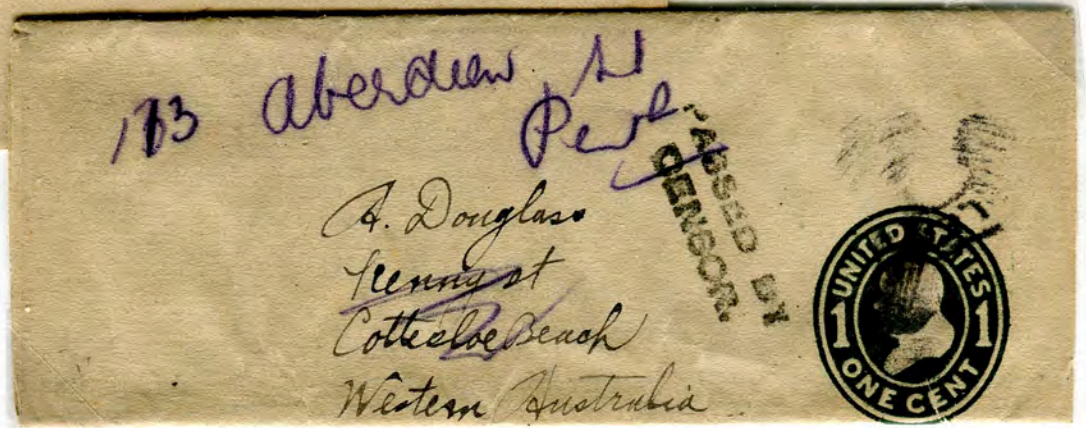 Aberdeen St
Perth
PASSED BY
CENSOR
A. Douglass
st
Cottesloe Beach
Western Australia
UNITED STATES
1 1
ONE CENT